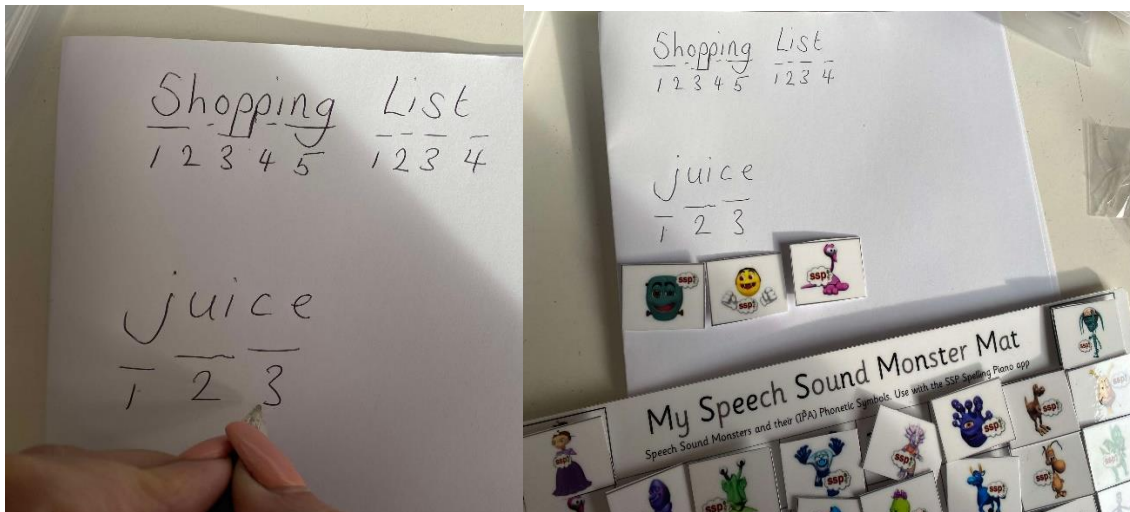 Shopping List
1 2 3 4 5 1 2 3 4
juice
1 2 3
Shopping List
1 2 3 4 5 1 2 3 4
juice
1 2 3
ssp! ssp! ssp!
My Speech Sound Monster Mat
Speech Sound Monsters and their (IPA) Phonetic Symbols. Use with the SSP Spelling Piano app
ssp! ssp! ssp! ssp! ssp!
ssp! ssp! ssp! ssp!